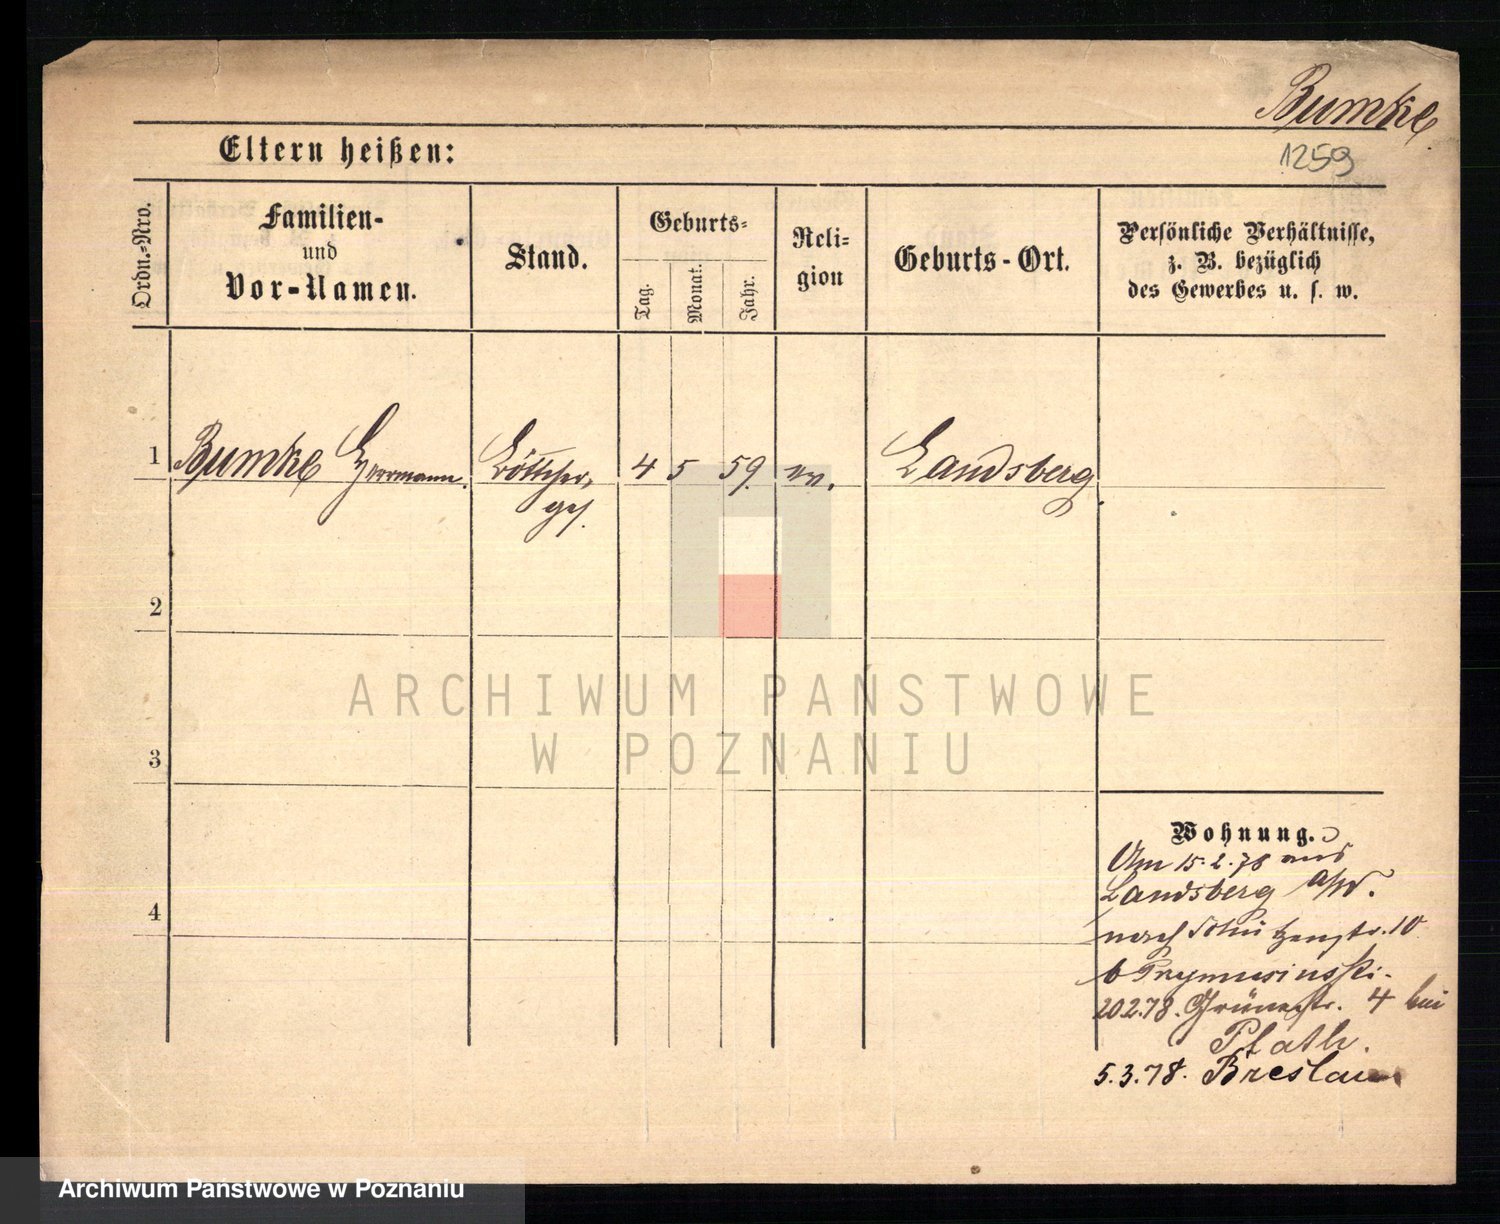 Bumke
1259
Eltern heißen:
Ordn.-Nro.
Familien-
und
Vor-Namen.
Stand.
Geburts-
Tag.
Monat.
Jahr.
Reli-
gion
Geburts-Ort.
Persönliche Verhältnisse,
z. B. bezüglich
des Gewerbes u. s. w.
1 Bumke Herrmann. Böttcher, 4 5 59. ev. Landsberg
ges.
2
3
4
ARCHIWUM PAŃSTWOWE
W POZNANIU
Wohnung.
Am 15.2.78 aus
Landsberg a/W.
nach Schützenstr. 10
b Prymusinski.
20.2.78. Grünestr. 4 bei
Plath.
5.3.78. Breslau
Archiwum Państwowe w Poznaniu